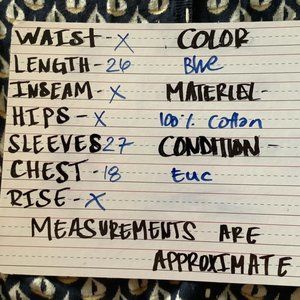 WAIST-X COLOR
LENGTH-26 Blue
INSEAM-X MATERIEL-
HIPS-X 100% Cotton
SLEEVES 27 CONDITION-
CHEST-18 EUC
RISE-X
MEASUREMENTS ARE
APPROXIMATE